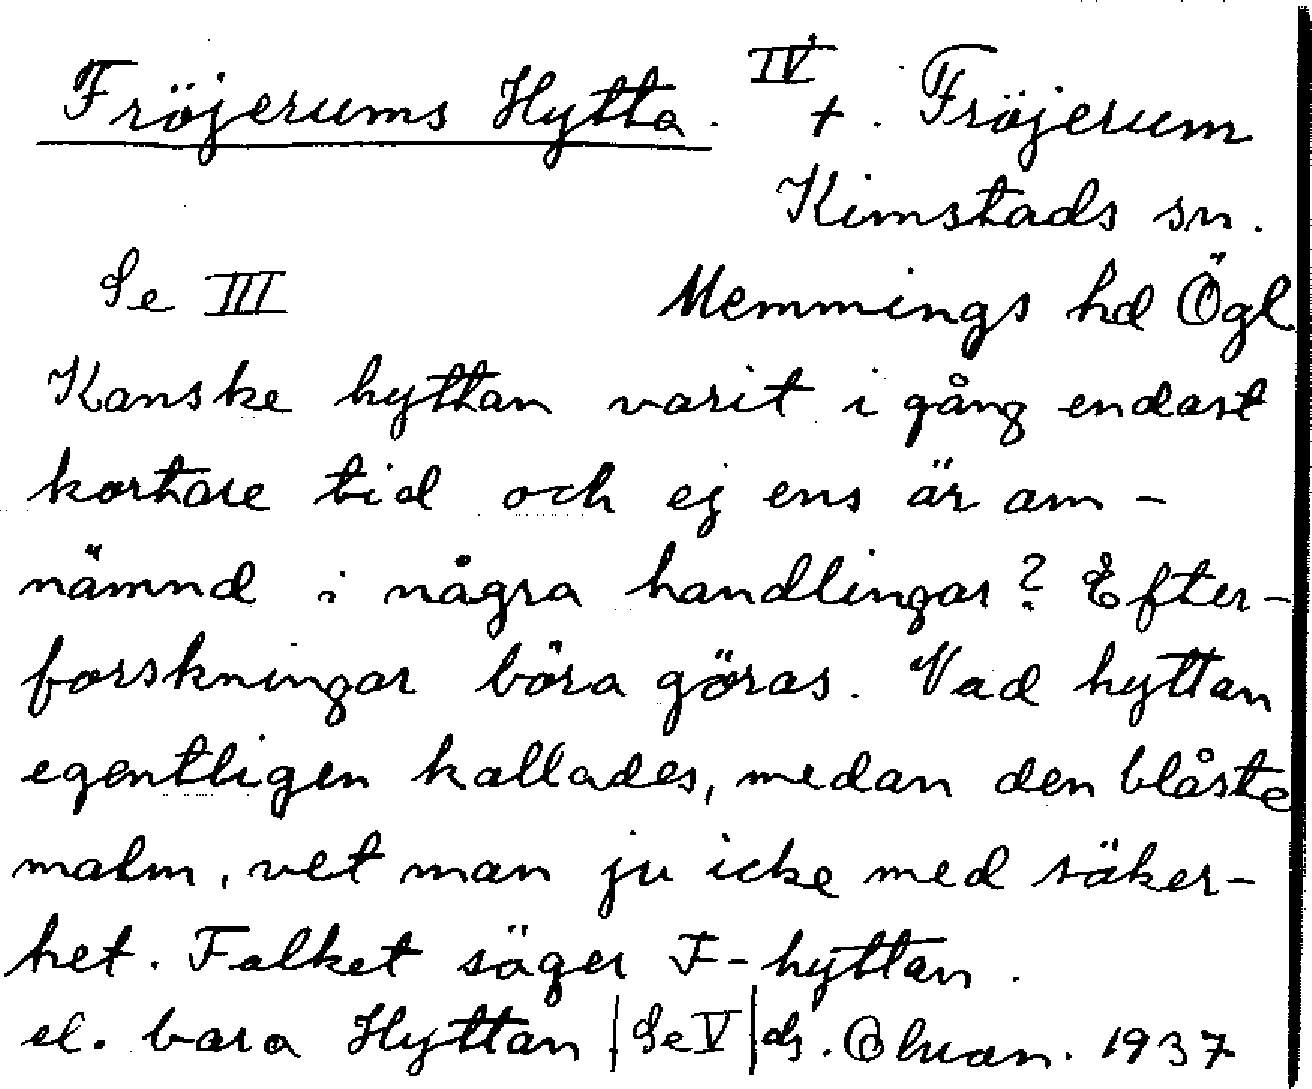 Fröjerums Hytta. IV + . Fröjerum
Kimstads sn.
Se III Memmings hd Ögl
Kanske hyttan varit i gång endast
kortare tid och ej ens är om-
nämnd i några handlingar? Efter-
forskningar böra göras. Vad hyttan
egentligen kallades, medan den blåste
malm, vet man ju icke med säker-
het. Folket säger F-hyttan.
el. bara Hyttan |Se V| ds. 1937